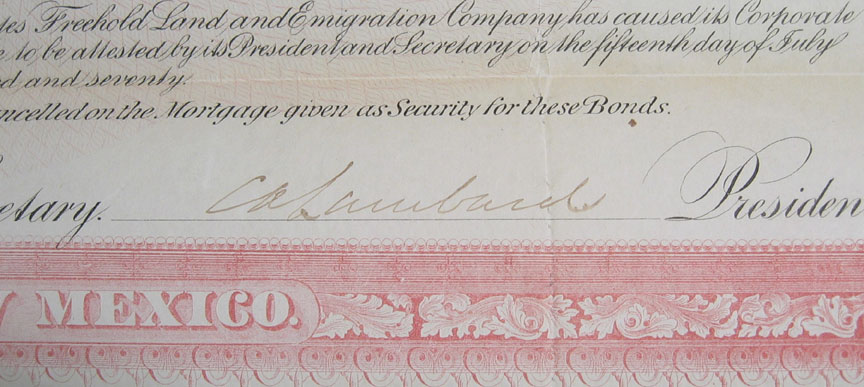 tes Freehold Land and Emigration Company has caused its Corporate
e to be attested by its President and Secretary on the fifteenth day of July
ed and seventy.
ncelled on the Mortgage given as Security for these Bonds.
etary. C A Lambard Presiden
MEXICO.